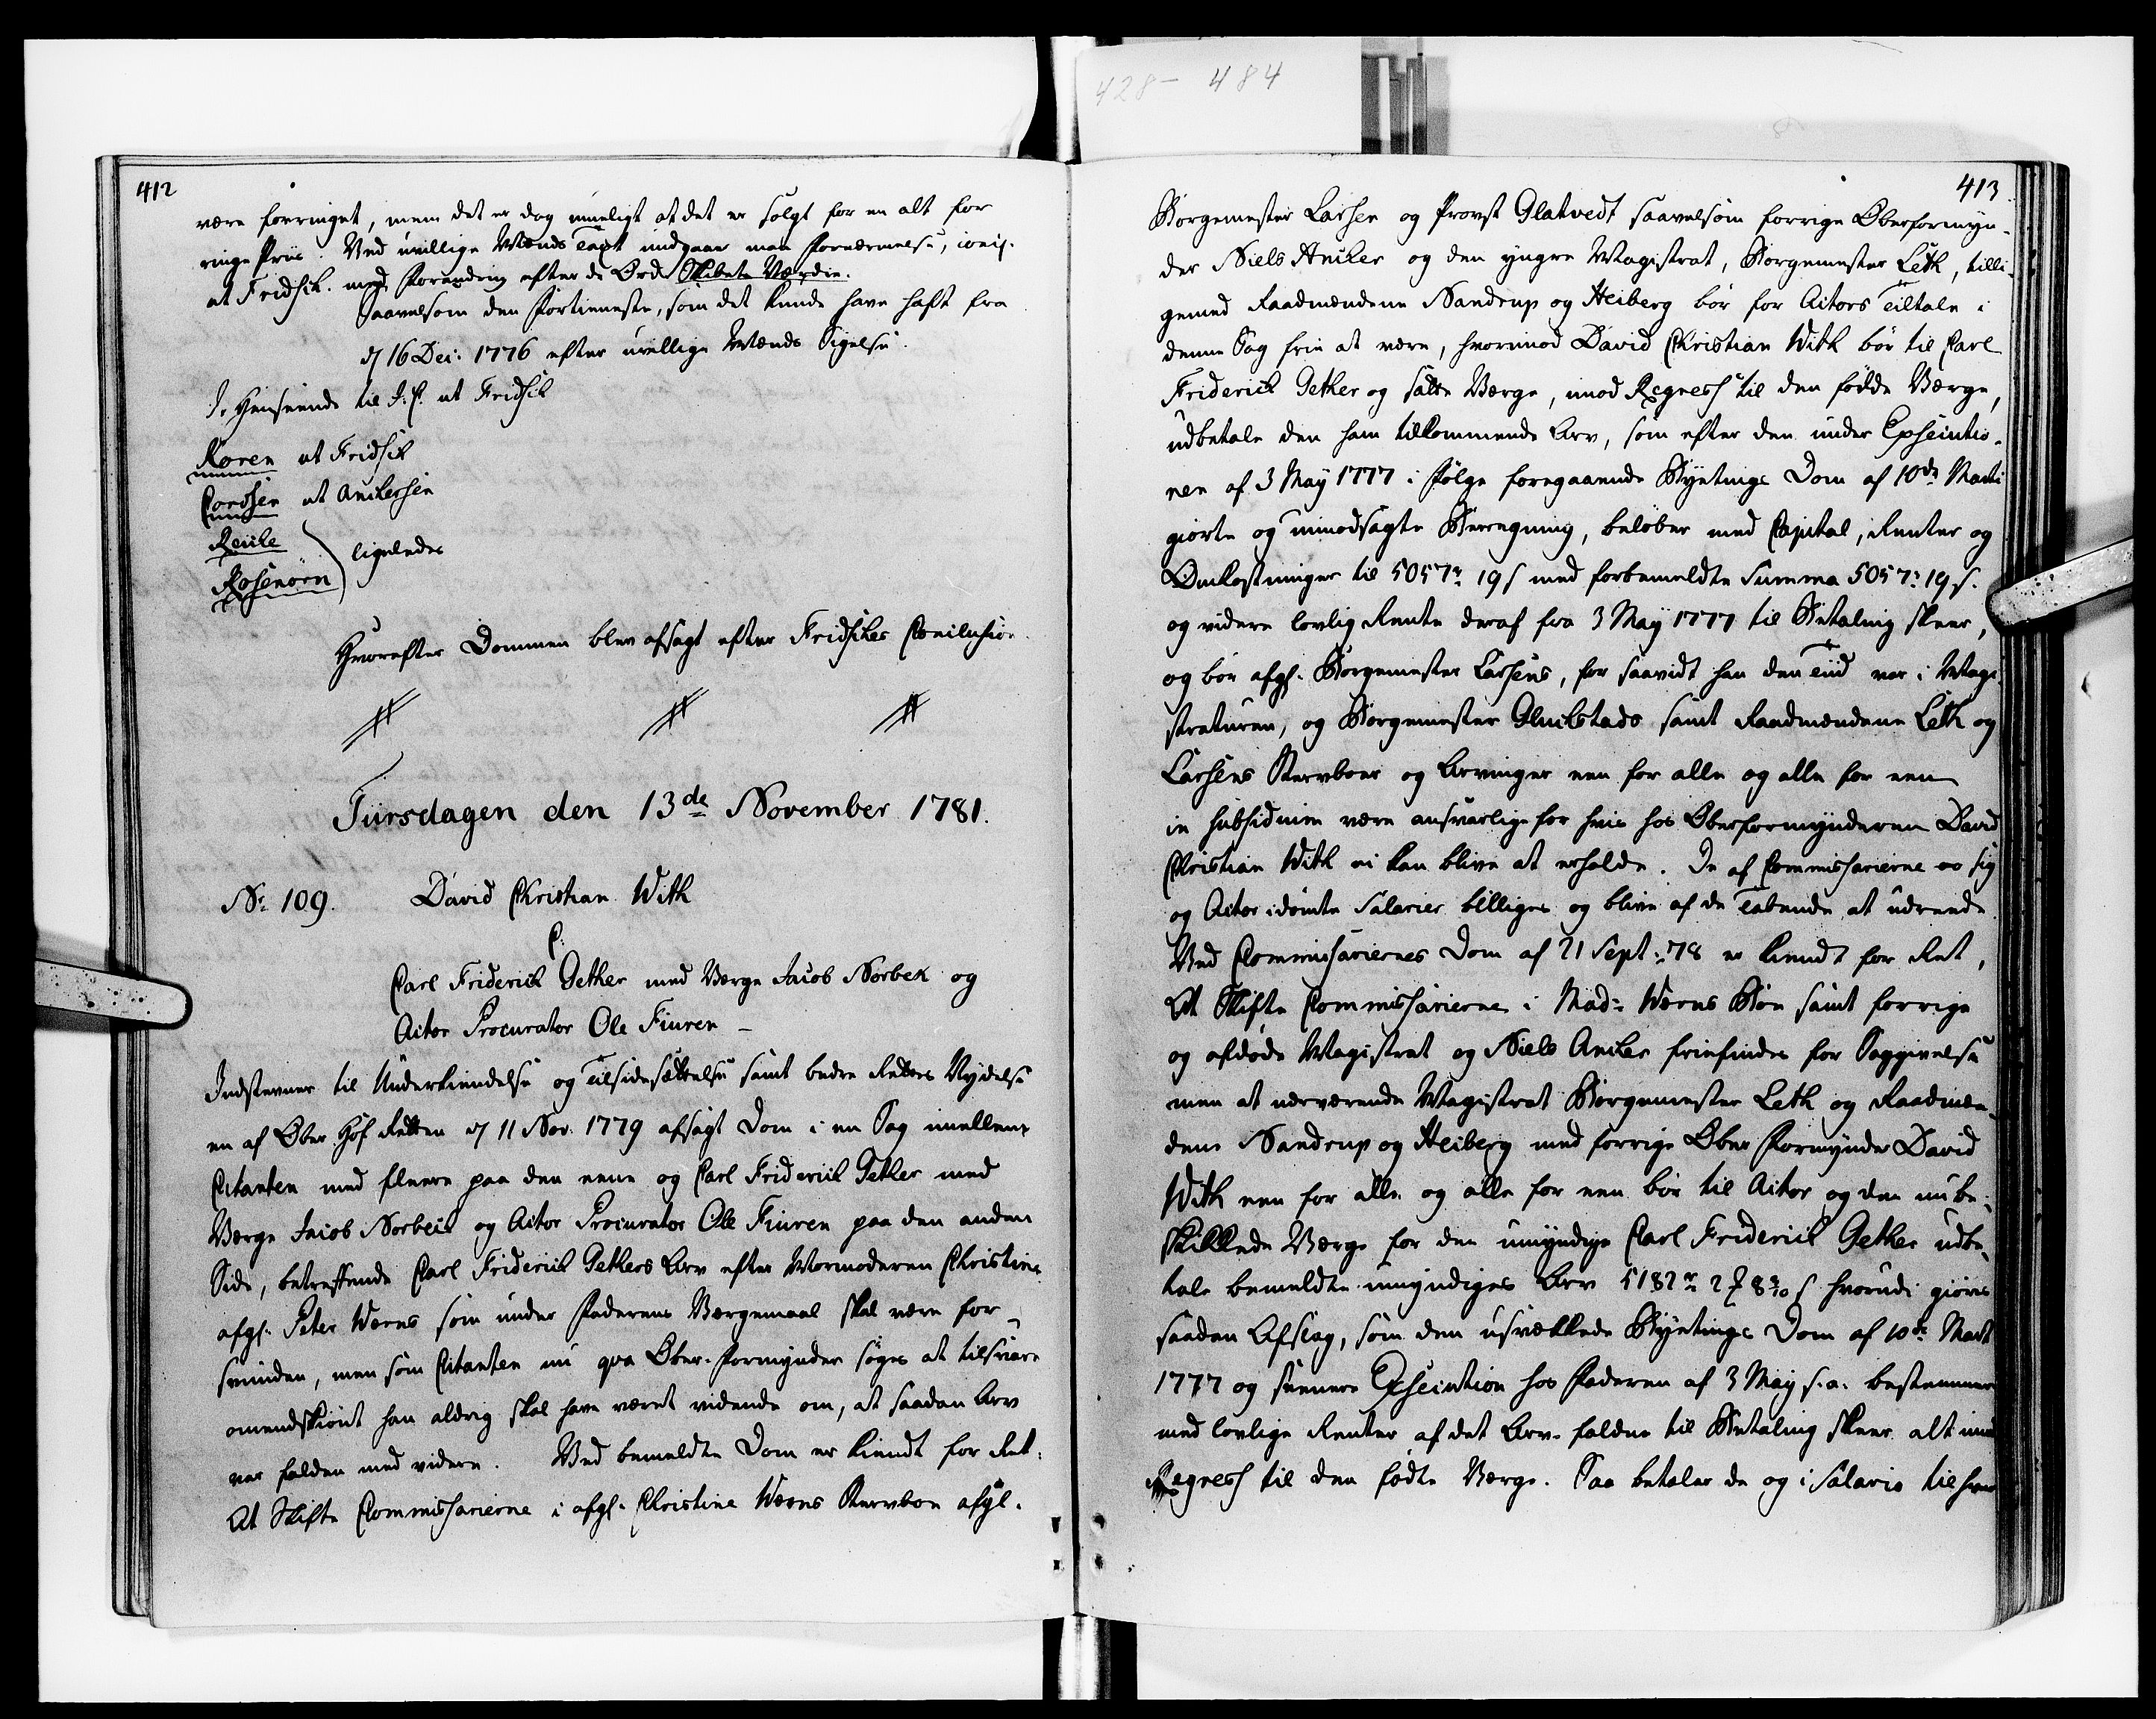 428- 484
412
være forringet, mem det er dog mueligt at det er solgt for en alt for
ringe Priis. Ved uvillige Mænds Taxt undgaaer man Fornærmelse, conf.
at Fridsch. med Forandring efter de Ord: Skibets Værdie.
saavelsom den Fortieneste, som det kunde have hafft fra
d 16 Dec: 1776 efter uvillige Mænds Sigelse.
I Henseende til J. C. ut Fridsch
Koren ut Fridsch
Cordsen ut Anchersen
Reiche
Rosenörn ligeledes
Hvorefter Dommen blev afsagt efter Fridsches Conclusion.
Tiirsdagen den 13de November 1781.
No 109. David Christian With
C:
Carl Friderich Gether med Værge Jacob Norbek og
Actor Procurator Ole Fiuren
Indstevner til Underkiendelse og Tilsidesættelse samt bedre Rettes Nydelse
en af Ober Hof Retten d 11 Nov. 1779 afsagt Dom i en Sag imellem
Citanten med fleere paa den eene og Carl Friderich Gether med
Værge Jacob Norbech og Actor Procurator Ole Fiuren paa den anden
Side, betreffende Carl Friderich Gethers Arv efter Mormoderen Christine
afgl. Peter Werns som under Faderens Værgemaal skal være for-
svunden, men som Citanten nu qva Ober-Formynder søges at tilsvare
omendskiönt han aldrig skal have været vidende om, at saadan Arv
var falden med videre. Ved bemeldte Dom er kiendt for Ret:
At Skifte Commissarierne i afgl. Christine Werns Sterboe afgl.
413
Borgemester Larsen og Provst Glatvedt saavelsom forrige Oberformyn-
der Niels Ancher og den yngre Magistrat, Borgemester Leth, tilli-
gemed Raadmændene Sandrup og Heiberg bør for Actors Tiltale i
denne Sag frie at være, hvorimod David Christian With bør til Carl
Friderich Gether og satte Værge, imod Regress til den fødde Værge,
udbetale den ham tilkommende Arv, som efter den under Execution-
nen af 3 May 1777 i Følge foregaaende Byetings Dom af 10de Marti
giorte og uimodsagte Beregning, beløber med Capital, Renter og
Omkostninger til 5057r 19s med forbemeldte Summa 5057r 19s.
og videre lovlig Rente deraf fra 3 May 1777 til Betaling skeer,
og bør afgl. Borgemester Larsens, for saavidt han den Tiid var i Magi-
straturen, og Borgemester Gluckstads samt Raadmændene Leth og
Larsens Sterboer og Arvinger een for alle og alle for een
in subsidium være ansvarlige for hvis hos Oberformynderen David
Christian With ei kan blive at erholde. De af Commissarierne sig
og Actor idömte Salarier billiges og blive af de Tabende at udreede
Ved Commissariernes Dom af 21 Sept: 78 er kiendt for Ret,
At Skifte Commissarierne i Mad: Werns Boe samt forrige
og afdøde Magistrat og Niels Ancher friefindes for Saggivelse
men at nærværende Magistrat Borgemester Leth og Raadmæn-
dene Sandrup og Heiberg med forrige Ober Formynder David
With een for alle og alle for een bør til Actor og den nu be-
skikkede Værge for den umyndige Carl Friderich Gether udbe-
tale bemeldte umyndiges Arv 5182r 2 8 s hvorudi giøres
saadan Afslag, som den usvækkede Byetings Dom af 10de Marti
1777 og seenere Execution hos Faderen af 3 May s. a. bestemmer
med lovlige Renter af det Arv falden til Betaling skeer alt imod
Regress til den fødte Værge. Saa betaler de og i Salario til hver